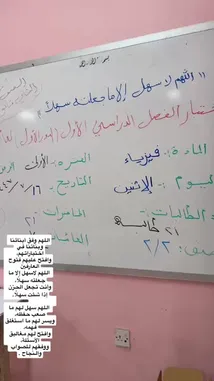 " اللهم لا سهل إلا ما جعلته سهلاً "
الفصل الدراسي الأول
المادة: فيزياء
الفترة: الأولى
اليوم: الإثنين
التاريخ:
الطالبات:
٢١ طالبة
الحاضرات: ٢١
٢/٢
اللهم وفق ابنائنا
وبناتنا في
اختباراتهم،
وافتح عليهم فتوح
العارفين
اللهم لاسهل إلا ما
جعلته سهلا،
وأنت تجعل الحزن
إذا شئت سهلاً.
اللهم سهل لهم ما
صعب حفظه،
ويسر لهم ما استغلق
فهمه،
وافتح لهم مغاليق
الأسئلة،
ووفقهم للصواب
والنجاح .